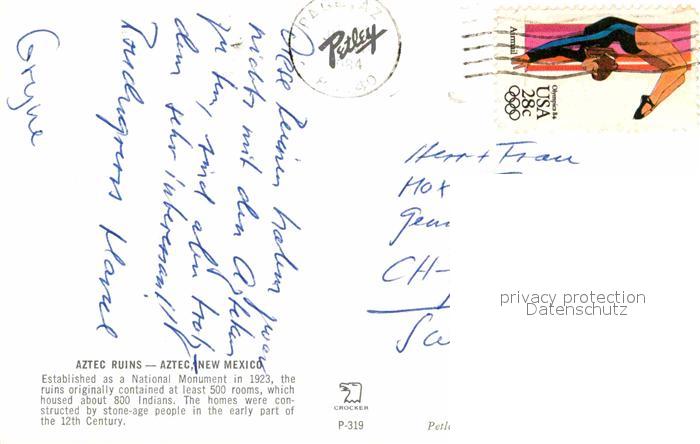 Diese Ruinen haben zwar
nichts mit den Azteken
zu tun, sind aber trotz-
dem sehr interessant!!
Grüsse
AZTEC RUINS — AZTEC, NEW MEXICO
Established as a National Monument in 1923, the
ruins originally contained at least 500 rooms, which
housed about 800 Indians. The homes were con-
structed by stone-age people in the early part of
the 12th Century.
Petley
CROCKER
P-319
Airmail
Olympics 84
USA
28c
Herr + Frau
CH-
privacy protection
Datenschutz